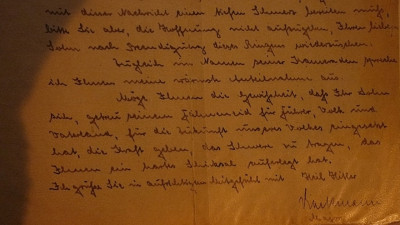 mit dieser Nachricht einen tiefen Schmerz bereiten muß,
bitte Sie aber, die Hoffnung nicht aufzugeben, Ihren lieben
Sohn nach Beendigung dieses Ringens wiederzusehen.
Zugleich im Namen seiner Kameraden spreche
ich Ihnen meine wärmste Anteilnahme aus.
Möge Ihnen die Gewißheit, daß Ihr Sohn
sich, getreu seinem Fahneneid für Führer, Volk und
Vaterland, für die Zukunft unseres Volkes eingesetzt
hat, die Kraft geben, das Schwere zu tragen, das
Ihnen ein hartes Schicksal auferlegt hat.
Ich grüße Sie in aufrichtigem Mitgefühl mit Heil Hitler